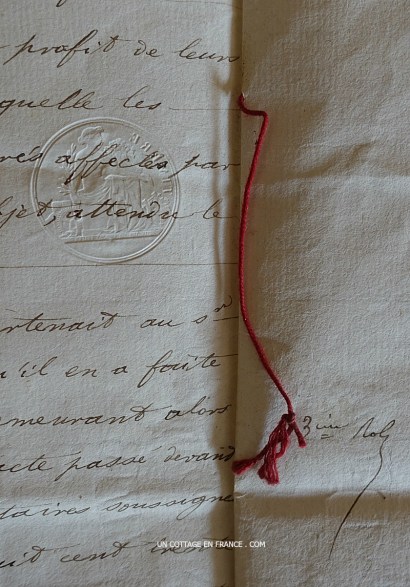 profit de leurs
quelle les
rés affectés par
jet, attendu le
rtenait au sr
u'il en a faite
meurant alors
acte passé devant
taires soussigné
uit cent
3ème Rôle
UN COTTAGE EN FRANCE . COM